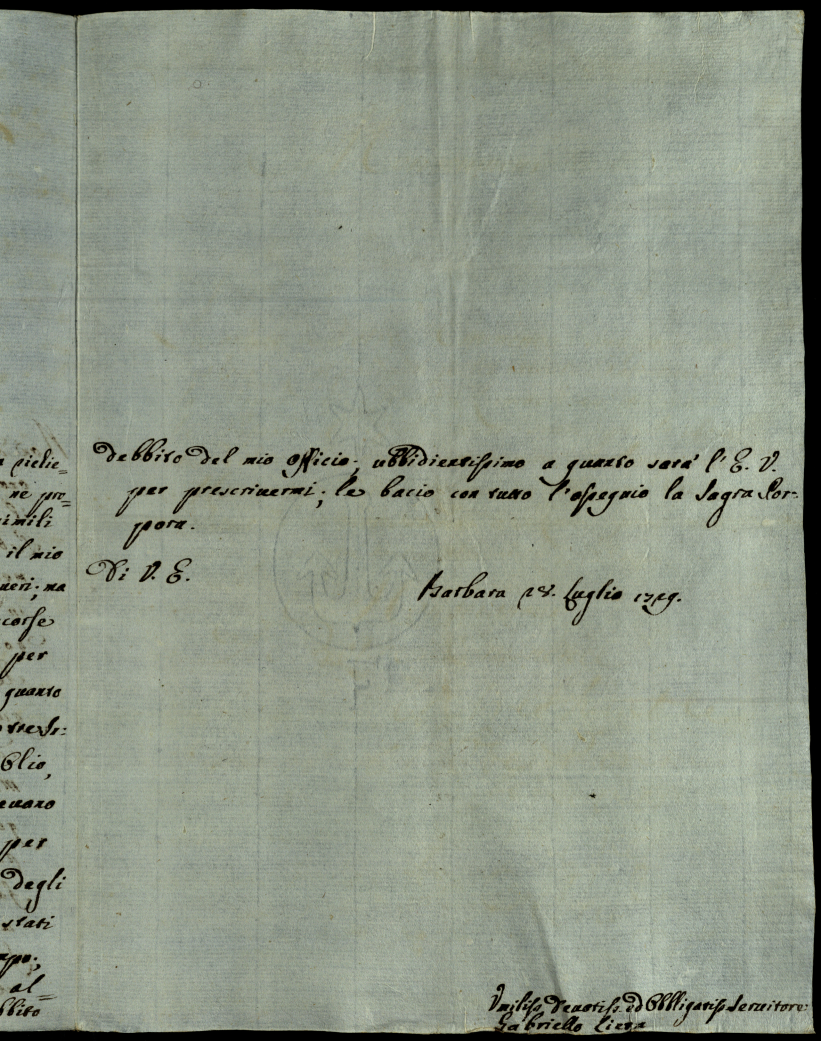 richie=
ne pro=
simili
il mio
ueri; ma
corse
per
quanto
Olio,
euano
per
degli
stati
mpo;
al=
bbito
debbito del mio officio; ubbidientissimo a quanto sarà l'E. V.
per prescriuermi; le bacio con tutto l'ossequio la Sagra Por-
pora.
Di V. E.
Barbara 28. Luglio 1729.
Vmiliss. Deuotiss. ed Obbligatiss. Seruitore
Gabriello